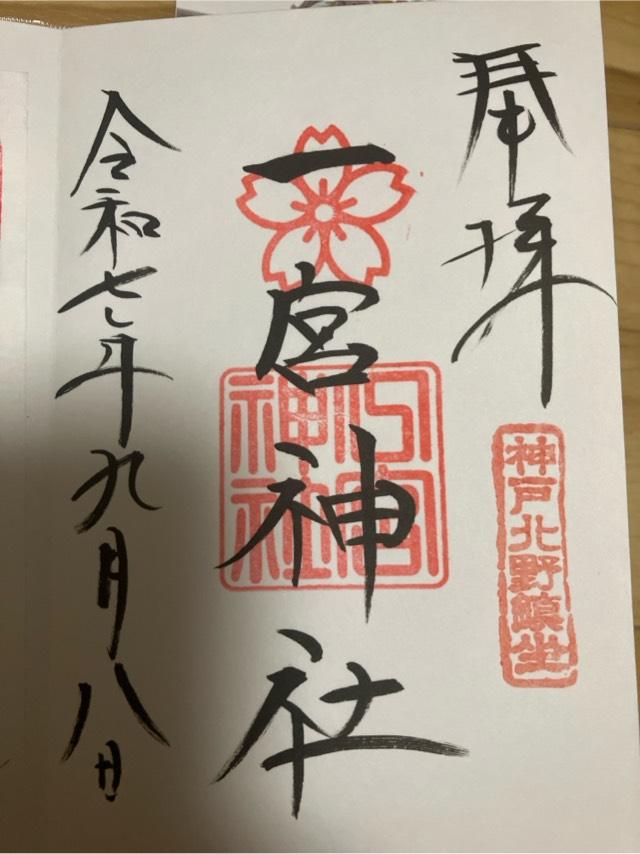 奉拝
神戸北野鎮坐
一宮神社
令和七年九月八日